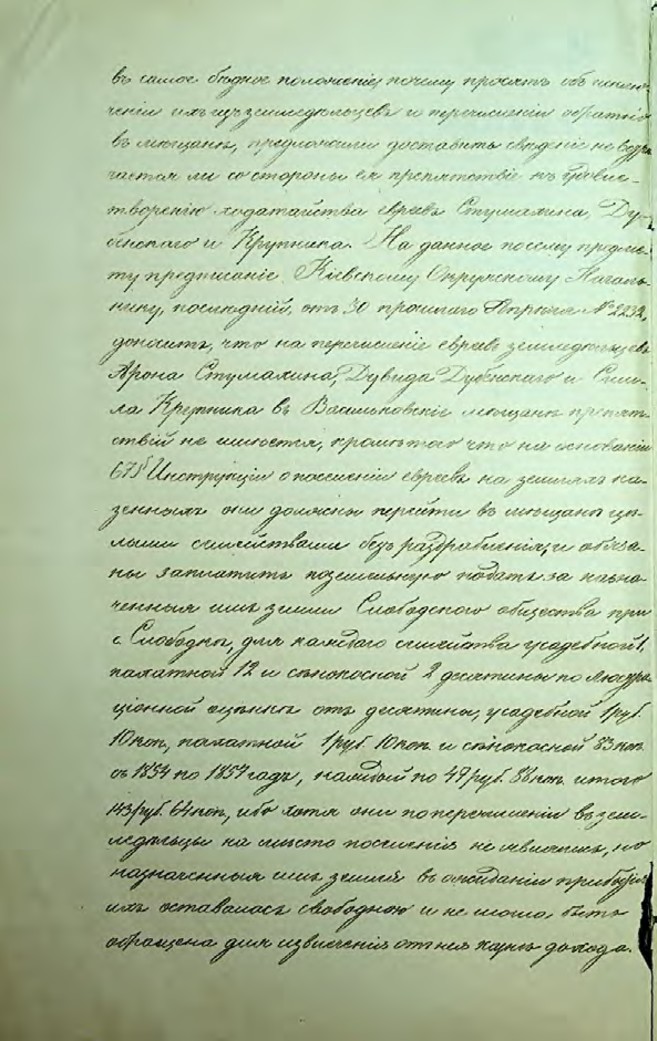 въ самое бѣдное положеніе, почему просятъ объ исклю-
ченіи ихъ изъ земледѣльцевъ и перечисленіи обратно
въ мѣщане, предложили доставить свѣденіе не встрѣ-
чается ли со стороны ея препятствіе къ удовле-
творенію ходатайства евреевъ Стумахина, Ду-
бенскаго и Крупника. На данное посему предме-
ту предписаніе Кіевскому Окружному Началь-
нику, послѣдній, отъ 30 прошлаго Апрѣля № 2232,
доноситъ, что на перечисленіе евреевъ земледѣльцевъ
Арона Стумахина, Дувида Дубенскаго и Сми-
ла Крупника въ Васильковскіе мѣщане препят-
ствій не имѣется, кромѣ того что на основаніи
67 § Инструкціи о поселеніи евреевъ на земляхъ ка-
зенныхъ они должны перейти въ мѣщане цѣ-
лыми семействами безъ раздробленія, и обяза-
ны заплатить поземельную подать за назна-
ченныя имъ земли Слободского общества при
с. Слободкѣ, для каждаго семейства усадебной 1,
пахатной 12 и сѣнокосной 2 десятины по люстра-
ціонной оцѣнкѣ отъ десятины, усадебной 1 руб.
10 коп, пахатной 1 руб. 10 коп. и сѣнокосной 83 коп.
съ 1854 по 1857 годъ, каждый по 47 руб. 88 коп. итого
143 руб. 64 коп, ибо хотя они по перечисленіи въ зем-
ледѣльцы на мѣсто поселенія не явились, но
назначенная имъ земля въ ожиданіи прибытія
ихъ оставалась свободною и не могла быть
обращена для извлеченія отъ нея къ дохода.